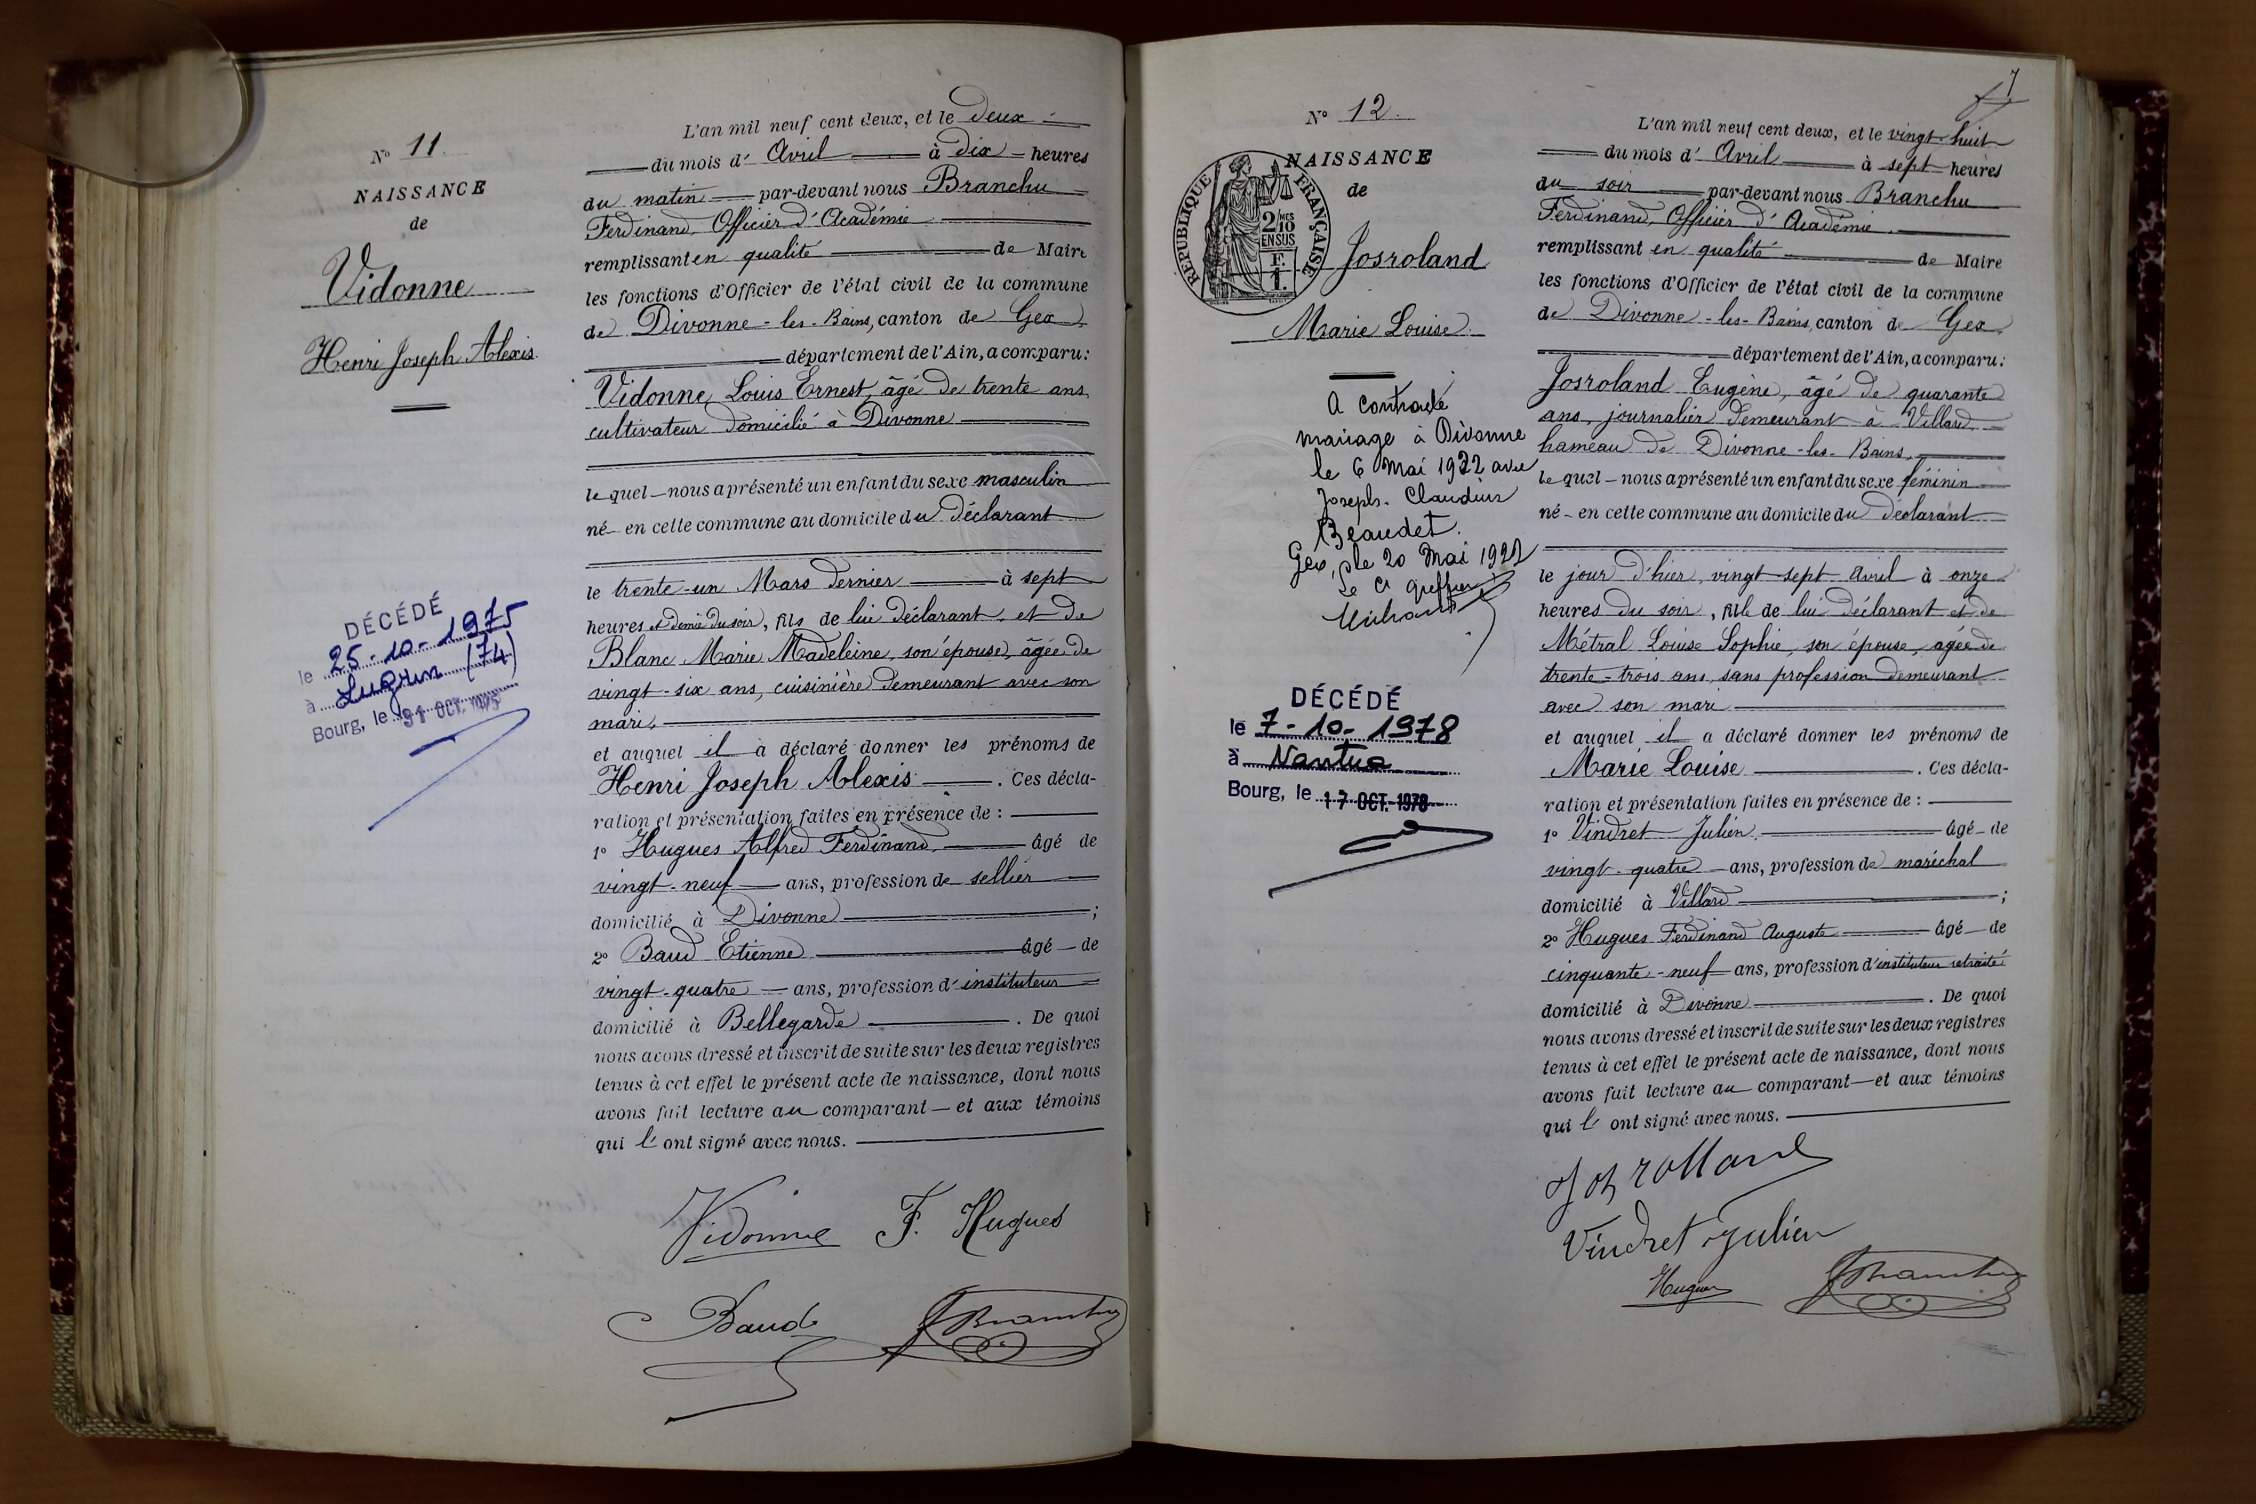 N° 11
NAISSANCE
de
Vidonne
Henri Joseph Alexis
DÉCÉDÉ
le 25-10-1975
à Lugrin (74)
Bourg, le 31 OCT. 1975
L'an mil neuf cent deux, et le deux
du mois d' Avril à dix heures
du matin par-devant nous Branchu
Ferdinand, Officier d'Académie
remplissant en qualité de Maire
les fonctions d'Officier de l'état civil de la commune
de Divonne-les-Bains, canton de Gex
département de l'Ain, a comparu:
Vidonne Louis Ernest, âgé de trente ans,
cultivateur domicilié à Divonne
le quel nous a présenté un enfant du sexe masculin
né en cette commune au domicile du déclarant
le trente-un Mars dernier à sept
heures et demie du soir, fils de lui déclarant, et de
Blanc Marie Madeleine, son épouse, âgée de
vingt-six ans, cuisinière demeurant avec son
mari,
et auquel il a déclaré donner les prénoms de
Henri Joseph Alexis. Ces décla-
ration et présentation faites en présence de :
1° Hugues Alfred Ferdinand âgé de
vingt-neuf ans, profession de sellier
domicilié à Divonne ;
2° Baud Etienne âgé de
vingt-quatre ans, profession d'instituteur
domicilié à Bellegarde. De quoi
nous avons dressé et inscrit de suite sur les deux registres
tenus à cet effet le présent acte de naissance, dont nous
avons fait lecture au comparant et aux témoins
qui l' ont signé avec nous.
Vidonne F. Hugues
Baud FBranchu
7
N° 12.
NAISSANCE
de
RÉPUBLIQUE FRANÇAISE
2/10MES
EN SUS
F.
1.
Josroland
Marie Louise
A contracté
mariage à Divonne
le 6 Mai 1922 avec
Joseph-Claudius
Beaudet.
Gex, le 20 Mai 1922
Le Ct Greffier
DÉCÉDÉ
le 7-10-1978
à Nantua
Bourg, le 17 OCT. 1978
L'an mil neuf cent deux, et le vingt-huit
du mois d' Avril à sept heures
du soir par-devant nous Branchu
Ferdinand, Officier d'Académie.
remplissant en qualité de Maire
les fonctions d'Officier de l'état civil de la commune
de Divonne-les-Bains, canton de Gex
département de l'Ain, a comparu:
Josroland Eugène, âgé de quarante
ans, journalier demeurant à Villard
hameau de Divonne-les-Bains,
le quel nous a présenté un enfant du sexe féminin
né en cette commune au domicile du déclarant
le jour d'hier, vingt-sept Avril à onze
heures du soir, fille de lui déclarant et de
Métral Louise Sophie, son épouse, agée de
trente-trois ans, sans profession demeurant
avec son mari
et auquel il a déclaré donner les prénoms de
Marie Louise. Ces décla-
ration et présentation faites en présence de :
1° Vindret Julien. âgé de
vingt-quatre ans, profession de maréchal
domicilié à Villard ;
2° Hugues Ferdinand Auguste âgé de
cinquante-neuf ans, profession d'instituteur retraité
domicilié à Divonne. De quoi
nous avons dressé et inscrit de suite sur les deux registres
tenus à cet effet le présent acte de naissance, dont nous
avons fait lecture au comparant et aux témoins
qui l' ont signé avec nous.
Josrolland
Vindret Julien
Hugues FBranchu